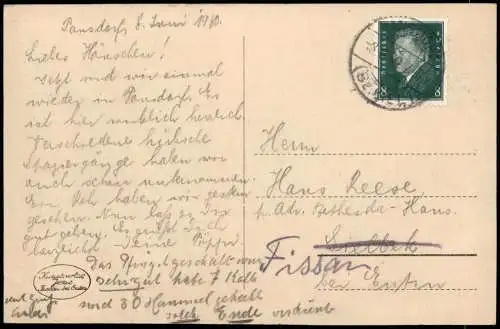 Pansdorf, 8. Juni 1930.
Liebes Hänschen!
Jetzt sind wir einmal
wieder in Pansdorf. Es
ist hier wirklich herrlich.
Verschiedene hübsche
Spaziergänge haben wir
auch schon unternommen.
Ein Reh haben wir gestern
gesehen. Nun laß es Dir
gut gehen. Es grüßt Dich
herzlichst Deine
Das Pfingstgeschäft war
sehr gut habe 7 Kalb
und 30 Hammel gehabt
Ende
Herrn
Hans Reese
p. Adr. Bethesda-Haus.
Sielbek
Fissau
bei Eutin
DEUTSCHES REICH
8 8